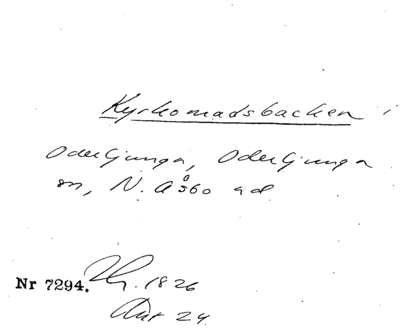 Kyrkomadsbacken i
Oderljunga, Oderljunga
sn, N. Åsbo hd
Nr 7294. 1826
Akt 24